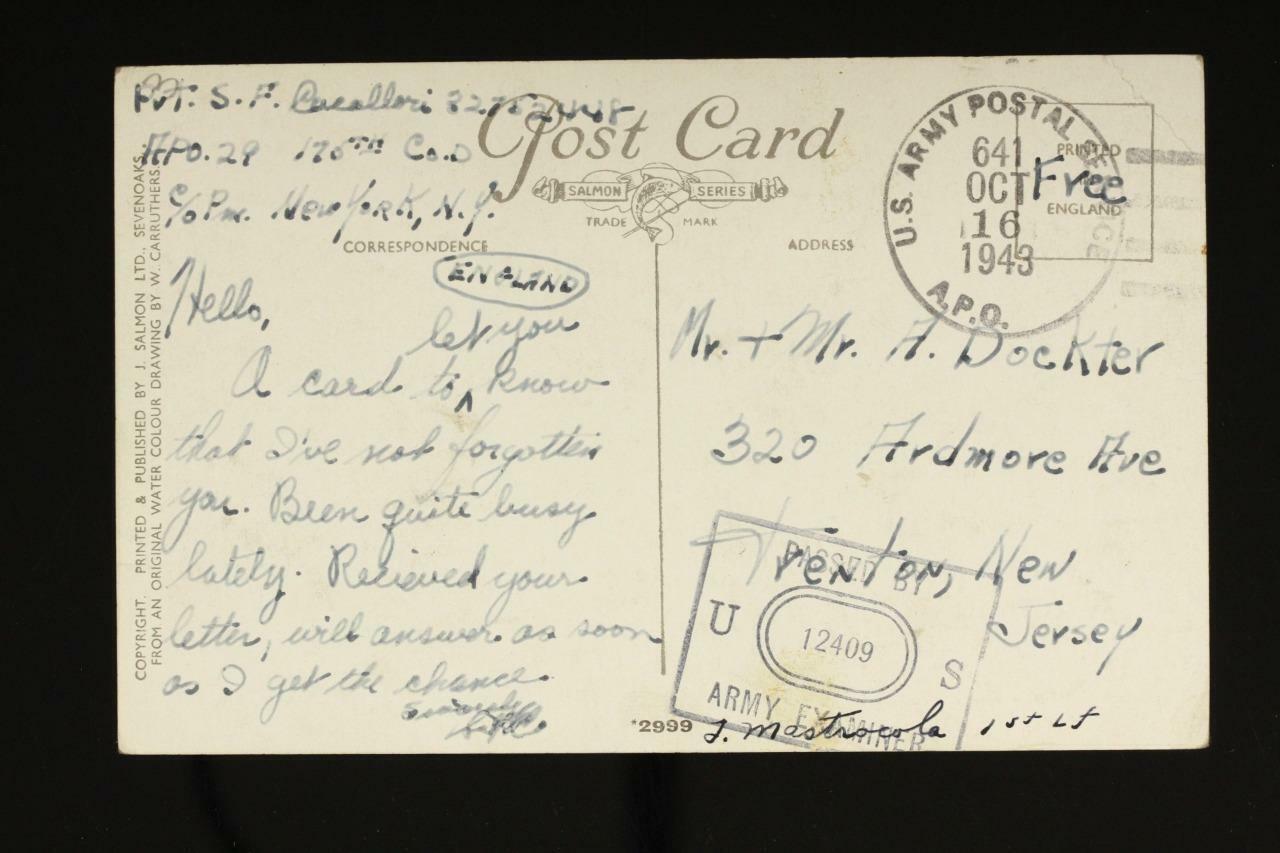 Pvt. S. F. Cavalleri 32752448
APO. 29 175TH Co. D
c/o P.m. New York, N.Y.
Post Card
SALMON SERIES
TRADE MARK
CORRESPONDENCE
ADDRESS
ENGLAND
Hello,
let you
A card to ^ know
that I've not forgotten
you. Been quite busy
lately. Recieved your
letter, will answer as soon
as I get the chance.
Sincerely
U.S. ARMY POSTAL SERVICE
641
OCT
16
1943
A.P.O.
PRINTED
IN
ENGLAND
Free
Mr. + Mr. A. Dockter
320 Ardmore Ave
Trenton, New
Jersey
PASSED BY
U 12409 S
ARMY EXAMINER
J. Mastrocola 1st Lt
*2999
COPYRIGHT. PRINTED & PUBLISHED BY J. SALMON LTD., SEVENOAKS.
FROM AN ORIGINAL WATER COLOUR DRAWING BY W. CARRUTHERS